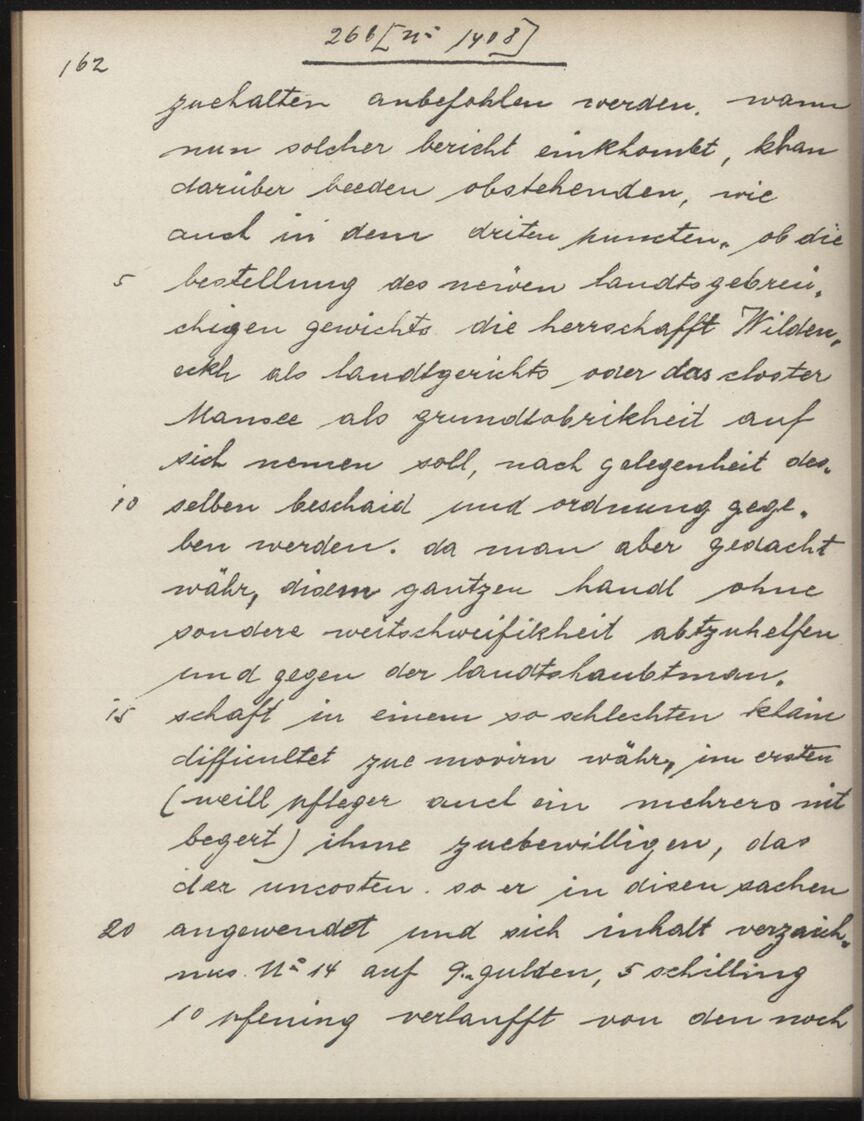 266 [N= 1408]
162
zuehalten anbefohlen werden. wann
nun solcher bericht einkhombt, khan
darüber beeden obstehenden, wie
auch in dem driten puncten, ob die
5 bestellung des neẅen landtsgebreü„
chigen gewichts die herrschafft Wilden„
eckh als landtgerichts oder das closter
Mansee als grundtobrikheit auf
sich nemen soll, nach gelegenheit des„
10 selben beschaid und ordnung gege„
ben werden. da man aber gedacht
währ, disem gantzen handl ohne
sondere weitschweifikheit abtzuhelfen
und gegen der landtshaubtman„
15 schaft in einem so schlechten klain
difficultet zue movirn währ, im ersten
(weill pfleger auch ein mehrers nit
begert) ihme zuebewilligen, das
der uncosten. so er in disen sachen
20 angewendet und sich inhalt verzaich„
nus N= 14 auf 9„ gulden, 5 schilling
10 pfening verlaufft von den noch